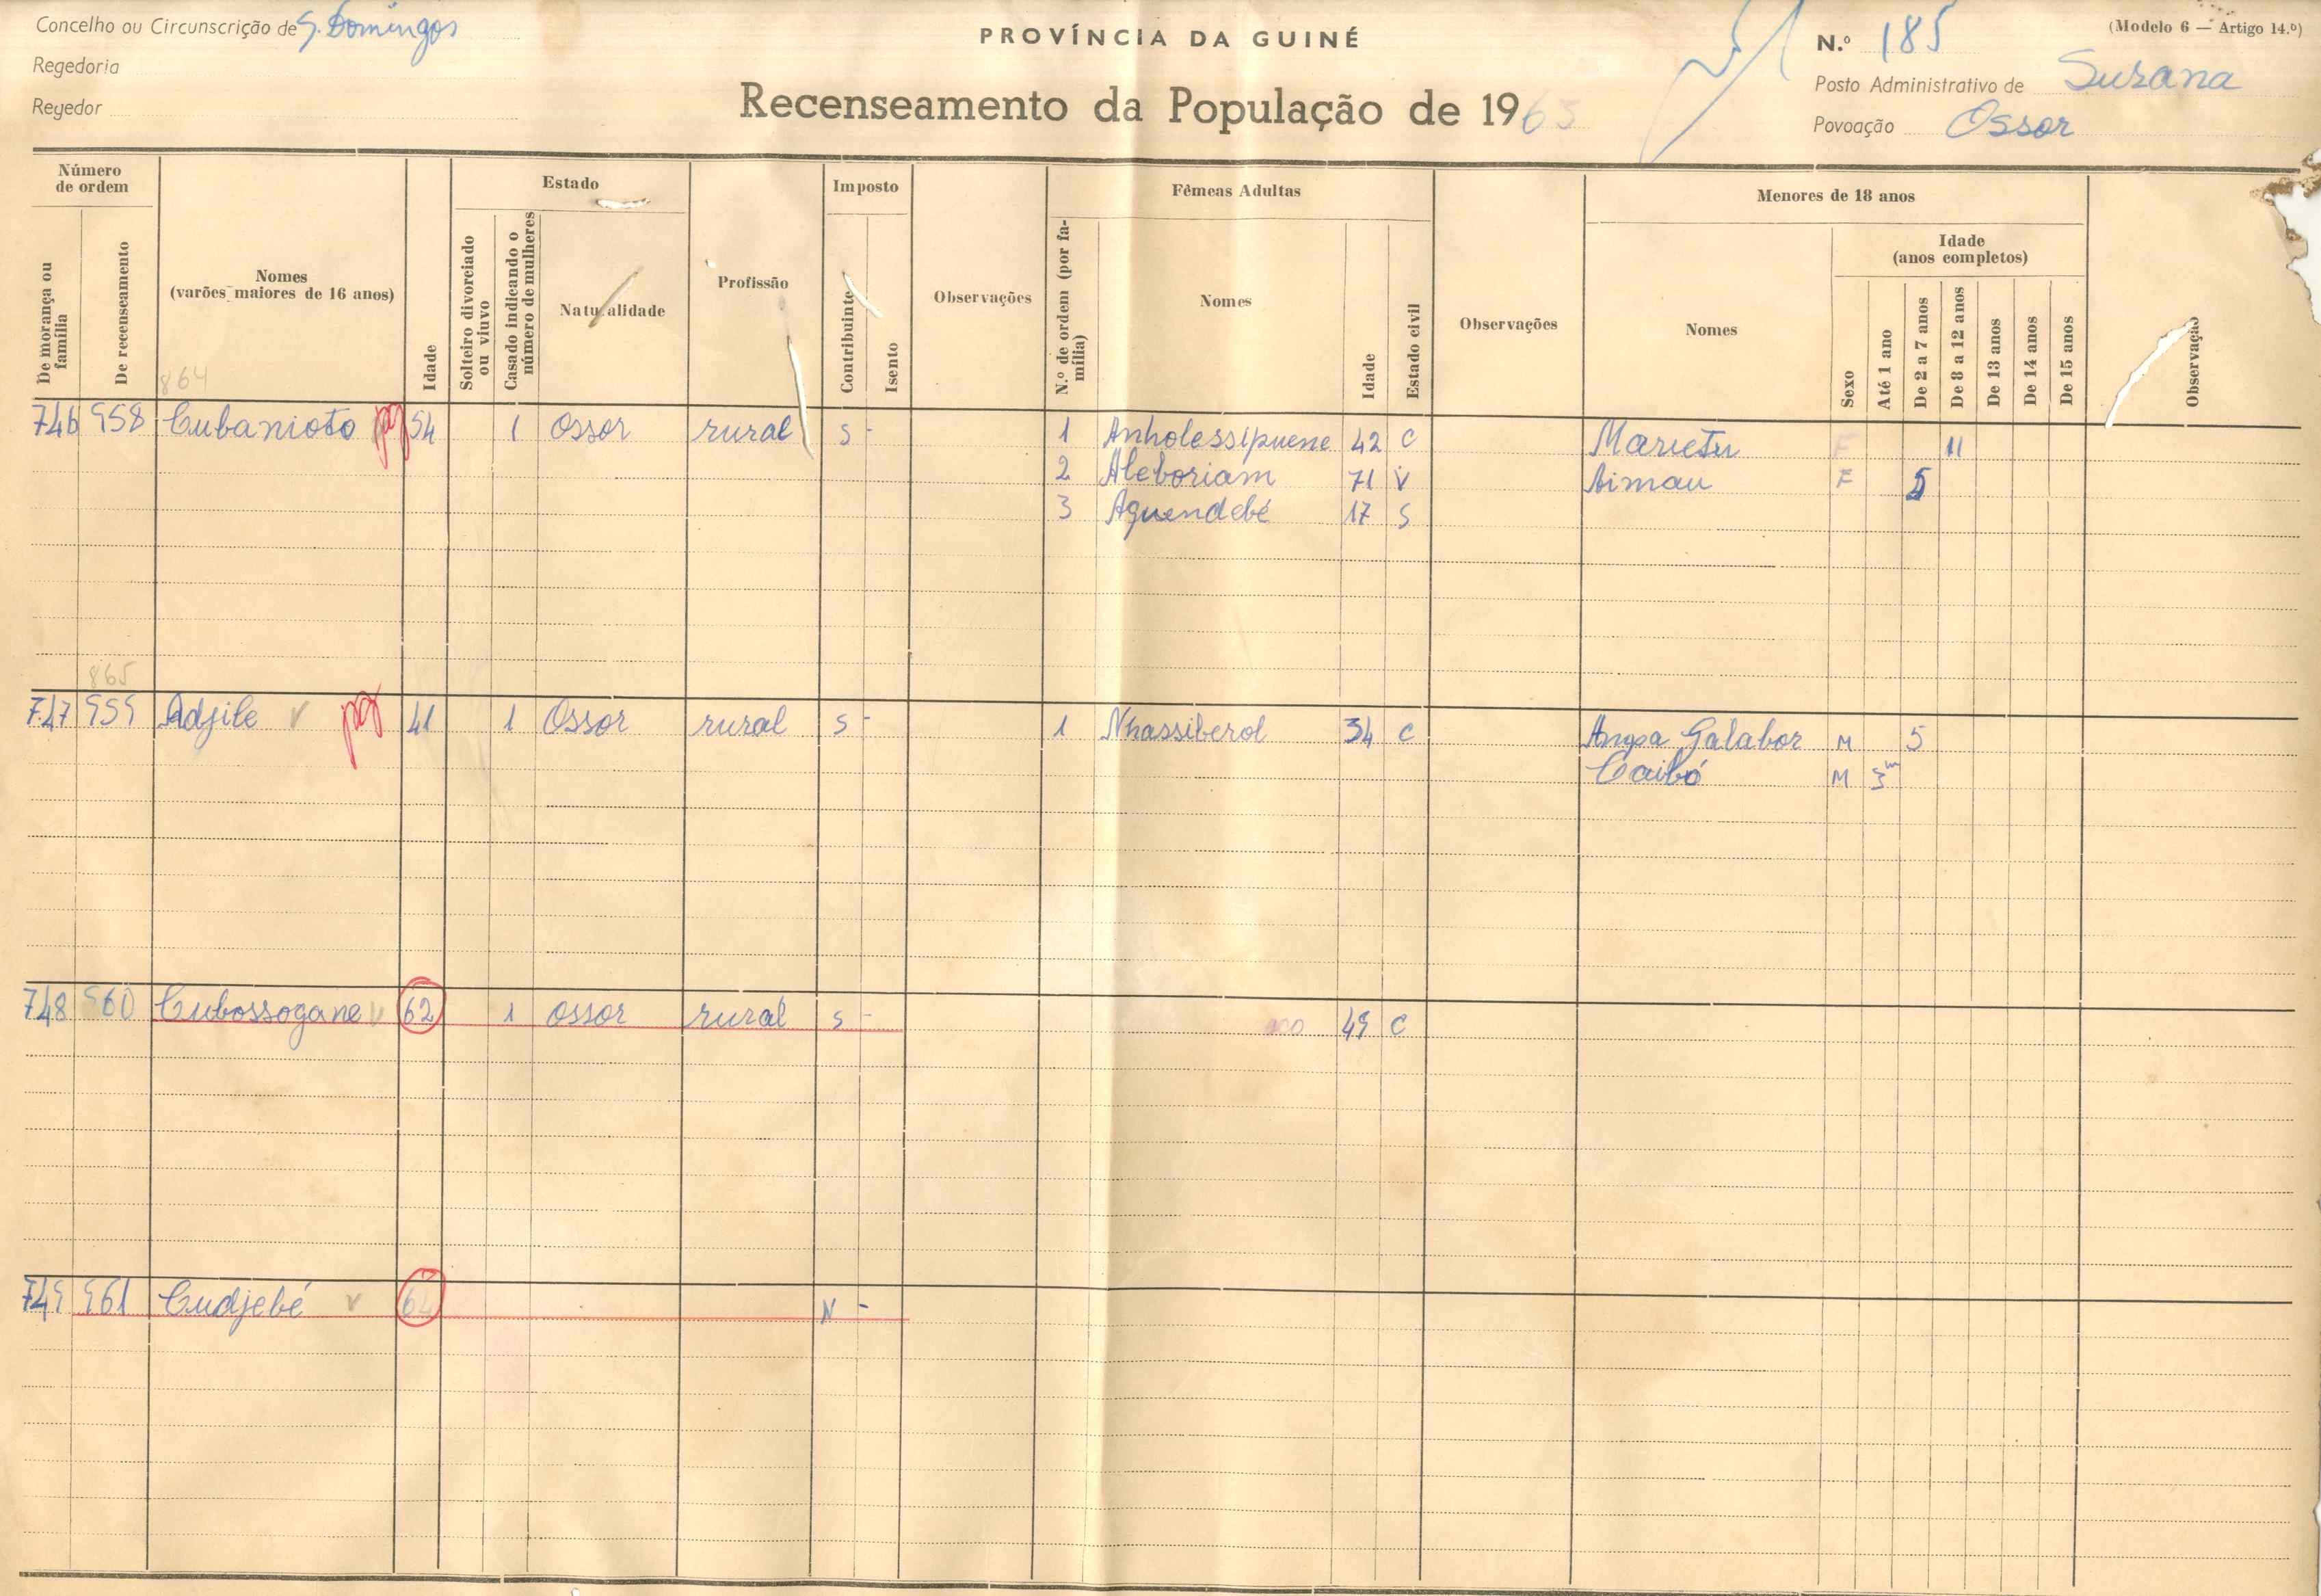 Concelho ou Circunscrição de S. Domingos
PROVÍNCIA DA GUINÉ
N.º 185
(Modelo 6 — Artigo 14.º)
Regedoria
Posto Administrativo de Suzana
Regedor
Recenseamento da População de 1963
Povoação Ossor
Número de ordem
De morança ou família
De recenseamento
Nomes
(varões maiores de 16 anos)
Idade
Estado
Solteiro divorciado ou viuvo
Casado indicando o número de mulheres
Naturalidade
Profissão
Imposto
Contribuinte
Isento
Observações
Fêmeas Adultas
N.º de ordem (por família)
Nomes
Idade
Estado civil
Observações
Menores de 18 anos
Nomes
Sexo
Idade
(anos completos)
Até 1 ano
De 2 a 7 anos
De 8 a 12 anos
De 13 anos
De 14 anos
De 15 anos
Observação
864
746 958 Cubanioto pg 54 1 Ossor rural S - 1 Anholessipuene 42 C Marietu F 11
2 Aleboriam 71 V Aimau F 5
3 Aguendebé 17 S
865
747 959 Adjile V pg 41 1 Ossor rural S - 1 Nhassiberol 34 C Ampa Galabor M 5
Caibó M 3m
748 960 Cubossogane V 62 1 Ossor rural S - 49 C
749 961 Cudjebé V 64 N -